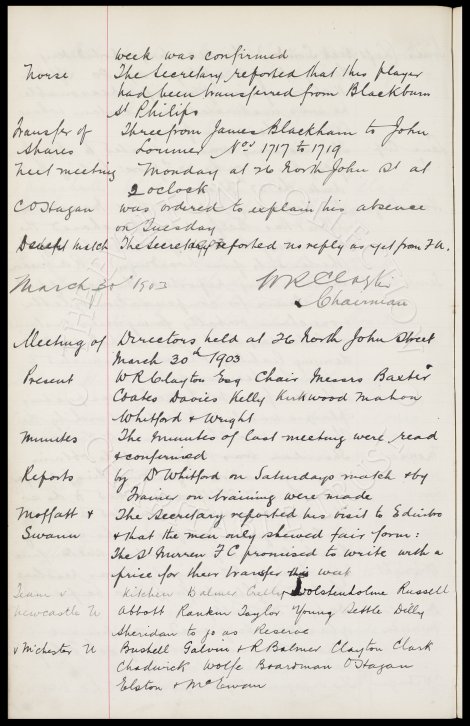 week was confirmed
Norse The Secretary reported that this player
had been transferred from Blackburn
St Philips
Transfer of Three from James Blackham to John
Shares Lorimer Nos 1717 to 1719
Next meeting Monday at 26 North John St at
2 oclock
C O'Hagan was ordered to explain his absence
on Tuesday
Benefit Match The Secretary reported no reply as yet from F.A.
March 30th 1903 W R Clayton
Chairman
Meeting of Directors held at 26 North John Street
March 30th 1903
Present W R Clayton Esq Chair Messrs Baxter
Coates Davies Kelly Kirkwood Mahon
Whitford & Wright
Minutes The Minutes of last meeting were read
& confirmed
Reports by Dr Whitford on Saturdays match & by
Trainer on training were made
Moffatt & The Secretary reported his visit to Edinbo
Swann & that the men only shewed fair form:
The St Mirren F C promised to write with a
price for their transfer this week
Team v Kitchen Balmer Crelly Wolstenholme Russell
Newcastle U Abbott Rankin Taylor Young Settle Dilly
Sheridan to go as Reserve
v Michester U Bushell Galvin & R Balmer Clayton Clark
Chadwick Wolfe Boardman O'Hagan
Elston & McEwan